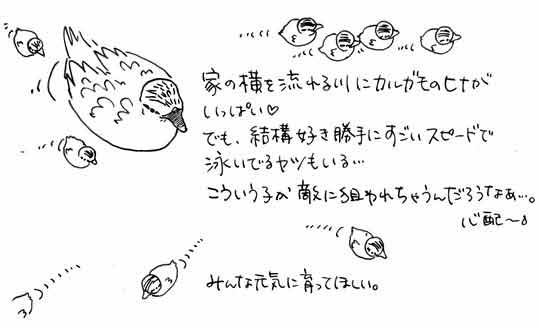 家の横を流れる川にカルガモのヒナが
いっぱい♡
でも、結構好き勝手にすごいスピードで
泳いでるヤツもいる…
こういう子が敵に狙われちゃうんだろうなぁ…。
心配〜♪
みんな元気に育ってほしい。